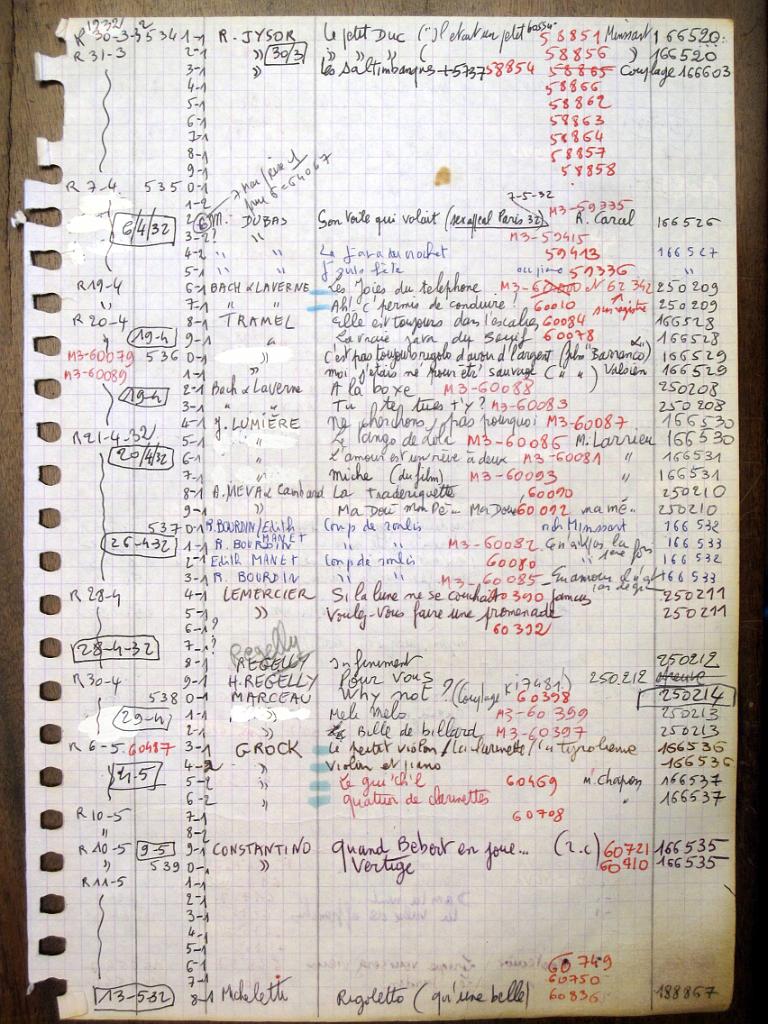 1932
R 30-3-32 534 1-1 R. JYSOR Le petit Duc (") Il etait un petit bossu 58851 Minssart 166520
R 31-3 2-1 " 30/3 " " " ( 58856 " 166520
3-1 " les Saltimbanques + 5737 58854 58865 Couplage 166603
4-1 58866
5-1 58862
6-1 58863
7-1 58864
8-1 58857
9-1 58858
R 7-4 535 0-1
1-2 7-5-32
6/4/32 2- M. DUBAS Son voile qui volait (sexappeal Paris 32) M3-59335 R. Caral 166526
3-2? " M3-59415
4-2 " " La Java du crochet 59413 166527
5-1 " " J'suis bête 59336 "
R19-4 6-1 BACH & LAVERNE Les Joies du telephone M3-6 N 62342 250209
" 7-1 " " Ah! c'permis de conduire! 60010 sur registre 250209
R 20-4 8-1 TRAMEL Elle est toujours dans l'escalier 60084 166528
19-4 9-1 " La vraie java du 60078 166528
M3-60079 536 0-1 " c'est pas toujours rigolo d'avoir d'argent (film "Barranco) 166529
M3-60089 1-1 " moi j'étais né pour etê sauvage ( " " ) Valsien 166529
19-4 2-1 Bach & Laverne A la boxe M3-60088 250208
3-1 " " Tu te tues t'y? M3-60083 250208
4-1 J. LUMIÈRE Ne cherchons pas pourquoi M3-60087 166530
R21-4-32 5-1 " Le tango de Lola M3-60086 M. Larrieu 166530
20/4/32 6-1 " L'amour est un rêve à deux M3-60081 " 166531
7-1 " Miche (du film) M3-60093 " 166531
8-1 A. MEVA & Camband La Traderiquette 60090 250210
9-1 Ma Dou' mon Pé... Ma Dou' 60092 ma mé.. 250210
537 0-1 R. BOURDIN/Edith MANET Coup de roulis Minssart 166532
26-4-32 1-1 R. BOURDIN " " M3-60082 Ce n'est pas la 1ère fois 166533
2-1 Edith MANET Coup de roulis 60080 " " 166532
3-1 R. BOURDIN " " M3-60085 En amour il n'est pas de 166533
R 28-4 4-1 LEMERCIER Si la lune ne se couchait 60390 jamais 250211
5-1 " Voulez-Vous faire une promenade 250211
6-1? 60392
28-4-32 7-? Regelly
8-1 REGELLY Infiniment 250212
R 30-4 9-1 H. REGELLY Pour vous 250.212
538 0-1 MARCEAU Why not? (Couplage Ki7481) 60398 250214
29-4 1-1 " Meli Melo M3-60399 250213
2-1 " Bille de billard M3-60397 250213
R 6-5 60487 3-1 GROCK Le petit violon / la clarinette / la tyrolienne 166536
4-2 " Violon et piano 166536
4-5 5-2 " Le qui'ch'l 60469 M. Chapon 166537
6-2 " quatuor de clarinettes " 166537
R 10-5 7-1 60708
" 8-2
R 10-5 9-5 9-1 CONSTANTINO Quand Bebert en joue... (r.c) 60721 166535
" 539 0-1 " Vertige 60410 166535
R 11-5 1-1
2-1
3-1
4-1
5-1
6-1 60749
7-1 60750
13-5-32 8-1 Micheletti Rigoletto (qu'une belle) 60836 188867